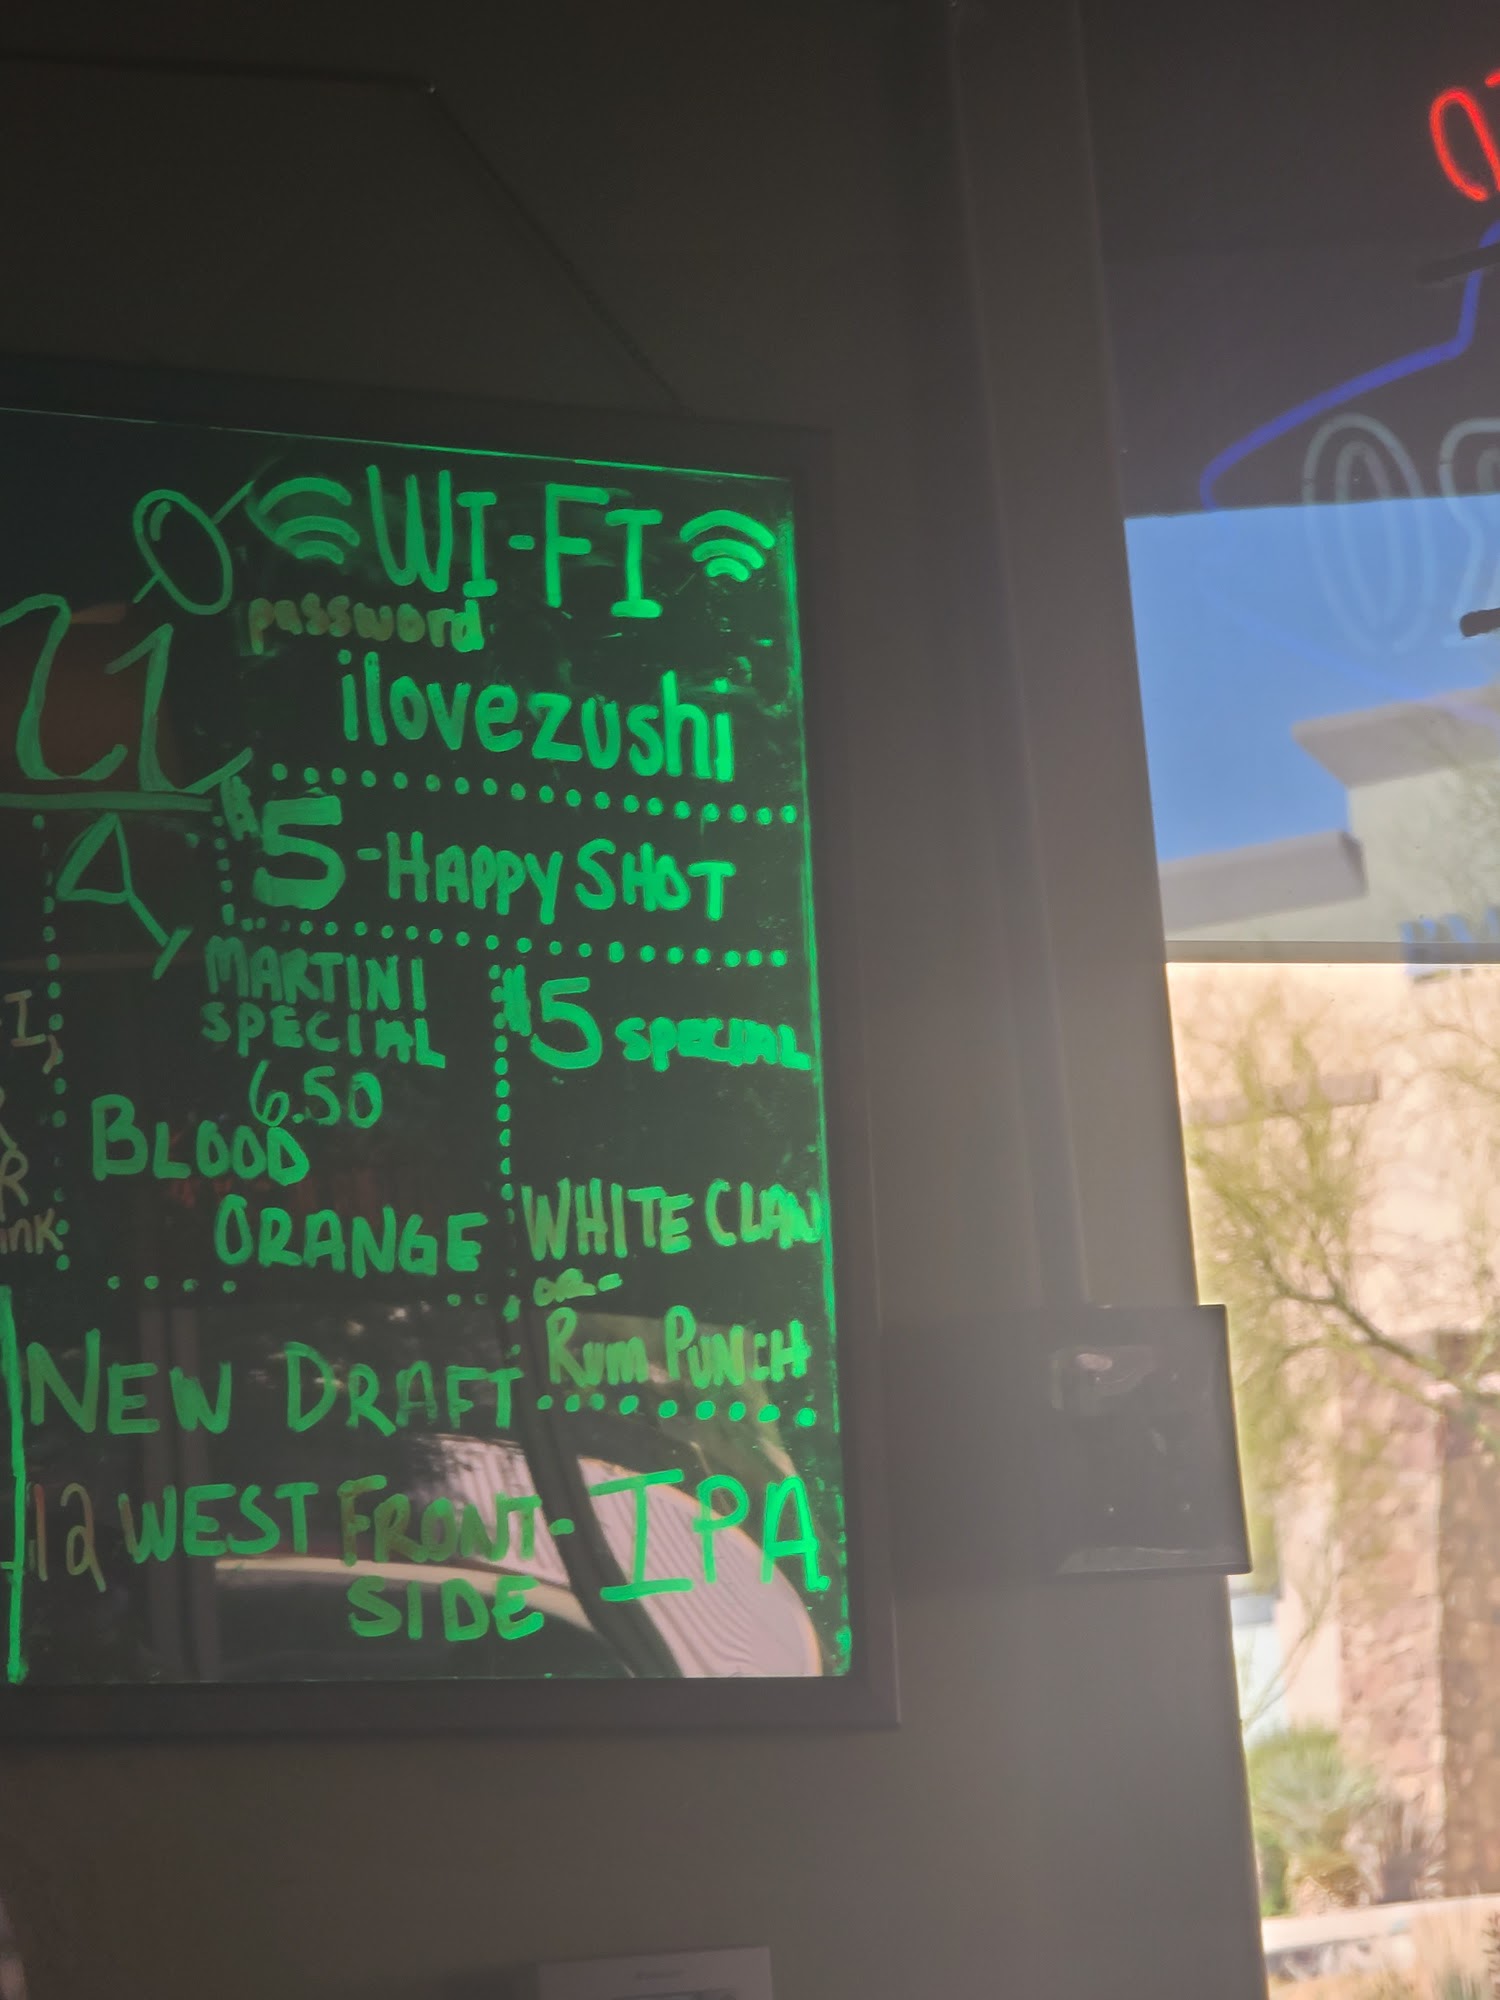 WI-FI
password
ilovezushi
$5-HAPPY SHOT
MARTINI
SPECIAL
6.50
BLOOD
ORANGE
$5 SPECIAL
WHITE CLAW
-OR-
RUM PUNCH
NEW DRAFT
12 WEST FRONT-
SIDE
IPA